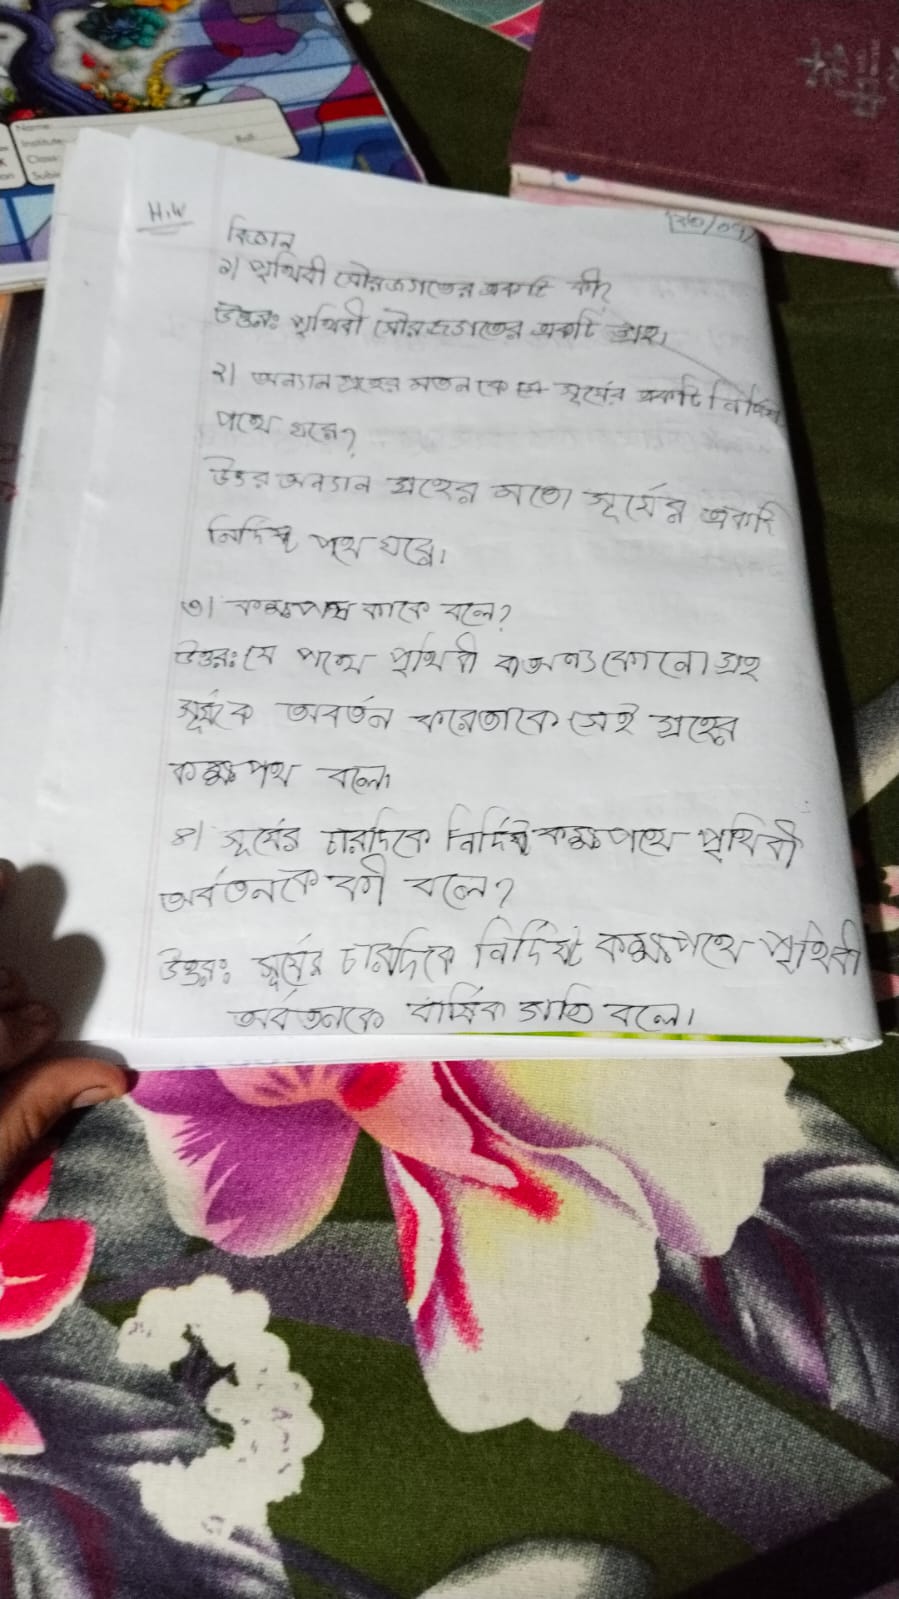 Name:
Institute:
Roll:
Class:
H.W
বিজ্ঞান
১। পৃথিবী সৌরজগতের একটি কী?
উত্তরঃ পৃথিবী সৌরজগতের একটি গ্রহ।
২। অন্যান গ্রহের মতন কে সূর্যের একটি নির্দিষ্ট
পথে ঘরে?
উত্তর অন্যান গ্রহের মতো সূর্যের একটি
নির্দিষ্ট পথে ঘরে।
৩। কক্ষপথ কাকে বলে?
উত্তরঃ যে পথে পৃথিবী বা অন্য কোনো গ্রহ
সূর্যকে অবর্তন করে তাকে সেই গ্রহের
কক্ষপথ বলে।
৪। সূর্যের চারদিকে নির্দিষ্ট কক্ষপথে পৃথিবী
অর্বতনকে কী বলে?
উত্তরঃ সূর্যের চারদিকে নির্দিষ্ট কক্ষপথে পৃথিবী
অর্বতনকে বার্ষিক গতি বলে।